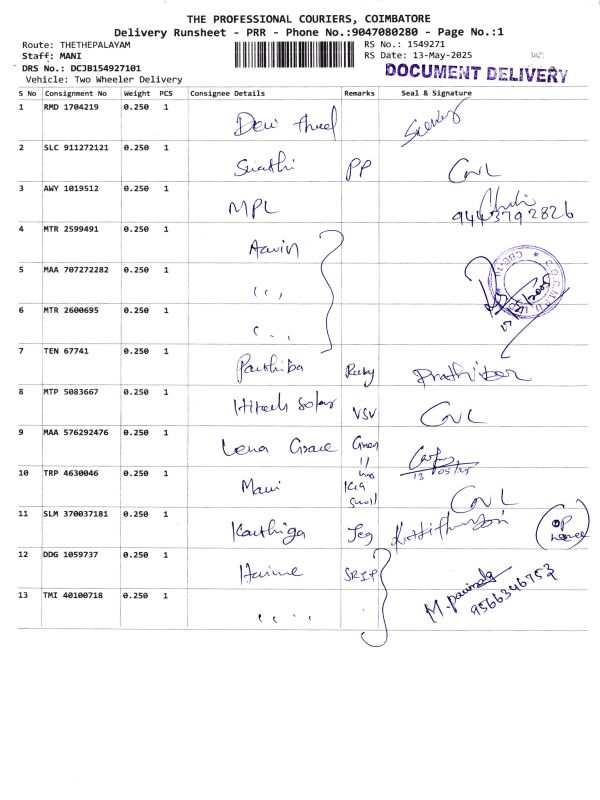 THE PROFESSIONAL COURIERS, COIMBATORE
Delivery Runsheet - PRR - Phone No.:9047080280 - Page No.:1
Route: THETHEPALAYAM
RS No.: 1549271
Staff: MANI
RS Date: 13-May-2025
DRS No.: DCJB154927101
DOCUMENT DELIVERY
Vehicle: Two Wheeler Delivery
S No Consignment No Weight PCS Consignee Details Remarks Seal & Signature
1 RMD 1704219 0.250 1 Devi
2 SLC 911272121 0.250 1 Swathi PP CNL
3 AWY 1019512 0.250 1 MPL
9443792826
4 MTR 2599491 0.250 1 Aavin
5 MAA 707272282 0.250 1
6 MTR 2600695 0.250 1
7 TEN 67741 0.250 1 Ruby
8 MTP 5083667 0.250 1 Hitech Solar VSV CNL
9 MAA 576292476 0.250 1 Lena Grace Green
13/05/25
10 TRP 4630046 0.250 1 Mani CNL
11 SLM 370037181 0.250 1 Karthiga
12 DDG 1059737 0.250 1 SRIP
13 TMI 40100718 0.250 1
9566346752